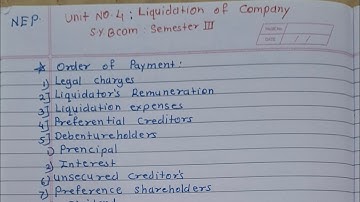 NEP.
Unit No. 4 : Liquidation of Company
S.Y.Bcom : Semester III
PAGE No.
DATE / /
* Order of Payment :
1) Legal charges
2] Liquidator's Remuneration
3] Liquidation expenses
4] Preferential Creditors
5] Debentureholders
1) Prencipal
2) Interest
6] unsecured Creditor's
7) Preference shareholders